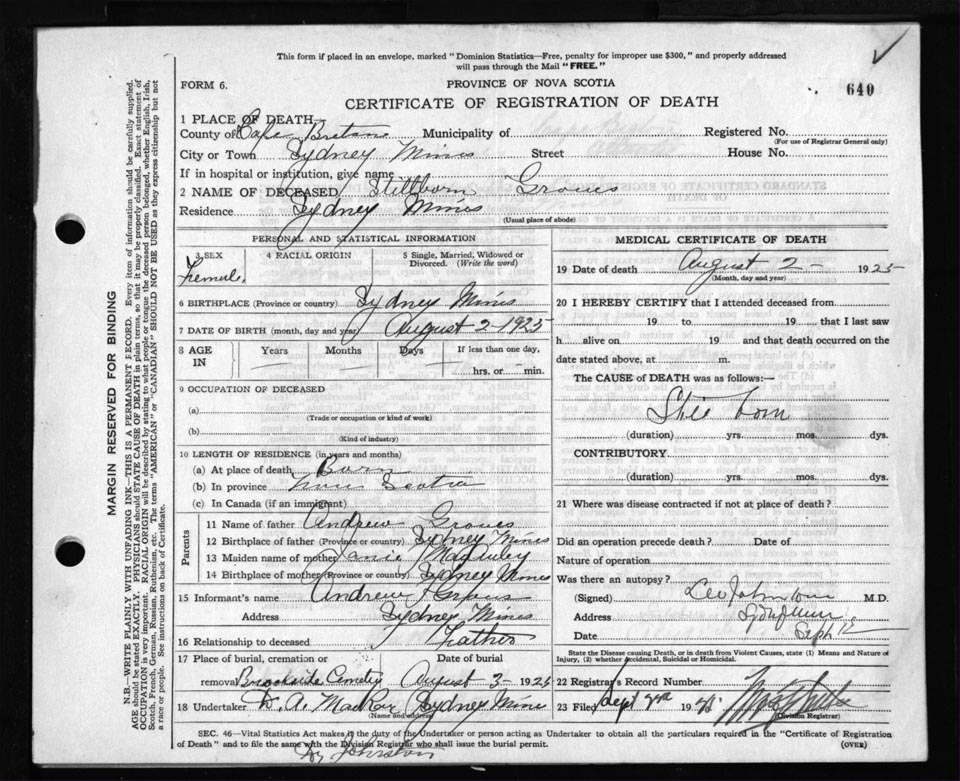 This form if placed in an envelope, marked "Dominion Statistics—Free, penalty for improper use $300," and properly addressed
will pass through the Mail "FREE."
FORM 6.
PROVINCE OF NOVA SCOTIA
640
CERTIFICATE OF REGISTRATION OF DEATH
1 PLACE OF DEATH
County of Cape Breton Municipality of Registered No.
(For use of Registrar General only)
City or Town Sydney Mines Street House No.
If in hospital or institution, give name
2 NAME OF DECEASED Stillborn Groves
Residence Sydney Mines
(Usual place of abode)
PERSONAL AND STATISTICAL INFORMATION
3 SEX 4 RACIAL ORIGIN 5 Single, Married, Widowed or
Divorced. (Write the word)
Female.
6 BIRTHPLACE (Province or country) Sydney Mines
7 DATE OF BIRTH (month, day and year) August 2-1925
8 AGE IN Years Months Days If less than one day,
hrs. or min.
9 OCCUPATION OF DECEASED
(a)
(Trade or occupation or kind of work)
(b)
(Kind of industry)
10 LENGTH OF RESIDENCE (in years and months)
(a) At place of death Born
(b) In province Nova Scotia
(c) In Canada (if an immigrant)
Parents
11 Name of father Andrew Groves
12 Birthplace of father (Province or country) Sydney Mines
13 Maiden name of mother
14 Birthplace of mother (Province or country) Sydney Mines
15 Informant's name Andrew Groves
Address Sydney Mines
16 Relationship to deceased Father
17 Place of burial, cremation or Date of burial
removal Brookside Cemetery August 3- 1925
18 Undertaker D. A. MacKay Sydney Mines
(Name and address)
MEDICAL CERTIFICATE OF DEATH
19 Date of death August 2- 1925
(Month, day and year)
20 I HEREBY CERTIFY that I attended deceased from
19 to 19 , that I last saw
h alive on 19 and that death occurred on the
date stated above, at m.
The CAUSE of DEATH was as follows:—
Still born
(duration) yrs. mos. dys.
CONTRIBUTORY
(duration) yrs. mos. dys.
21 Where was disease contracted if not at place of death?
Did an operation precede death? Date of
Nature of operation
Was there an autopsy?
(Signed) Leo Johnston M.D.
Address Syd Mines
Date Sept 12
State the Disease causing Death, or in death from Violent Causes, state (1) Means and Nature of
Injury, (2) whether Accidental, Suicidal or Homicidal.
22 Registrar's Record Number
23 Filed Sept 192
(Division Registrar)
SEC. 46—Vital Statistics Act makes it the duty of the Undertaker or person acting as Undertaker to obtain all the particulars required in the "Certificate of Registration
of Death" and to file the same with the Division Registrar who shall issue the burial permit.
(OVER)
Dr Johnston
MARGIN RESERVED FOR BINDING
N.B.—WRITE PLAINLY WITH UNFADING INK—THIS IS A PERMANENT RECORD. Every item of information should be carefully supplied.
AGE should be stated EXACTLY. PHYSICIANS should STATE CAUSE OF DEATH in plain terms, so that it may be properly classified. Exact statement of
OCCUPATION is very important. RACIAL ORIGIN will be described by stating to what people or tongue the deceased person belonged, whether English, Irish,
Scotch, French, German, Russian, Ruthenian, etc. The terms "AMERICAN" or "CANADIAN" SHOULD NOT BE USED as they express citizenship but not
a race or people. See instructions on back of Certificate.